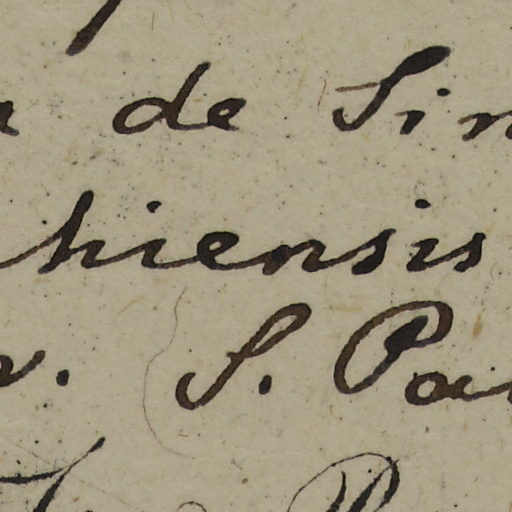 de Sin
hiensis
S. Pau